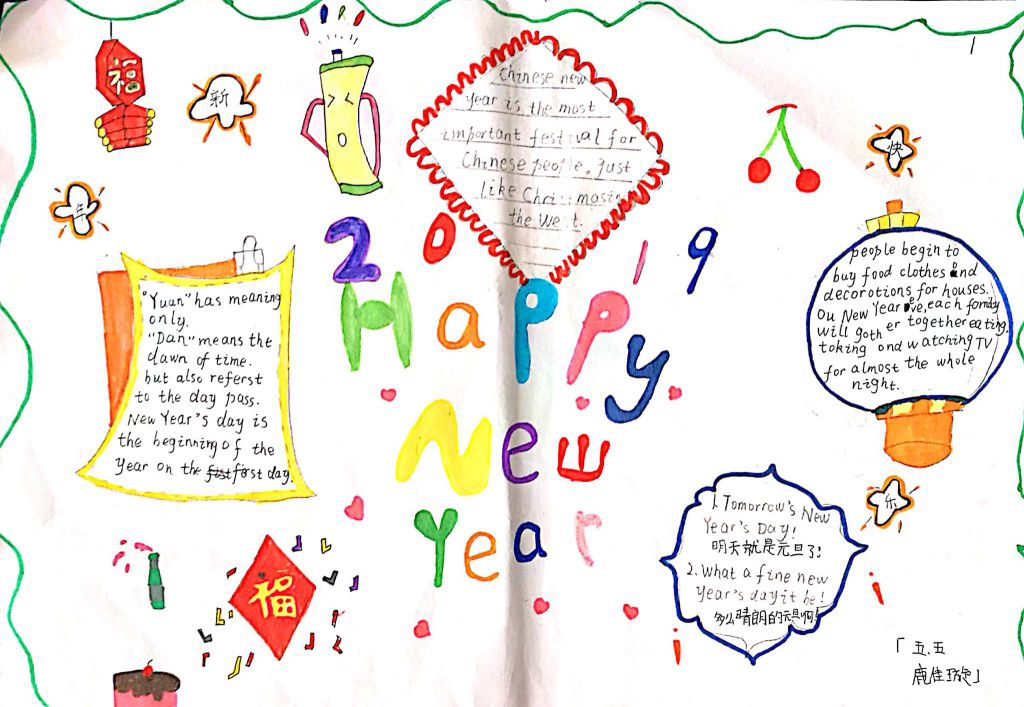 福
新
年
快
乐
Chinese new
year is the most
important festival for
Chinese people, just
like
the West.
2019
Happy
New
Year
"Yuan" has meaning
only.
"Dan" means the
dawn of time.
but also referst
to the day pass.
New Year's day is
the beginning of the
Year on the first day.
people begin to
buy food clothes and
decorotions for houses.
ou New Year eve, each family
will goth er together eating
toking ond watching TV
for almost the whole
night.
福
1. Tomorrow's New
Year's Day!
明天就是元旦了!
2. What a fine new
year's day it be!
多么晴朗的元旦啊!
「五.五
鹿佳璇」